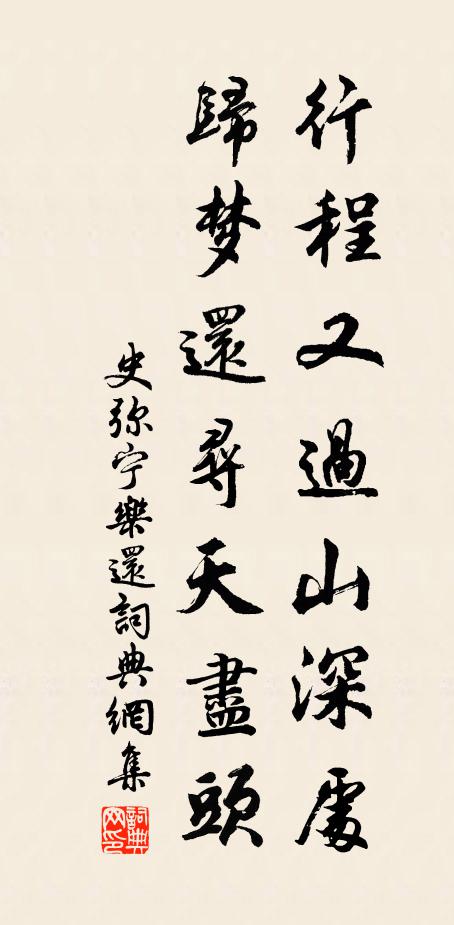 行程又過山深處
歸梦還尋天盡頭
史弥宁樂還詞典網集
詞典
网印